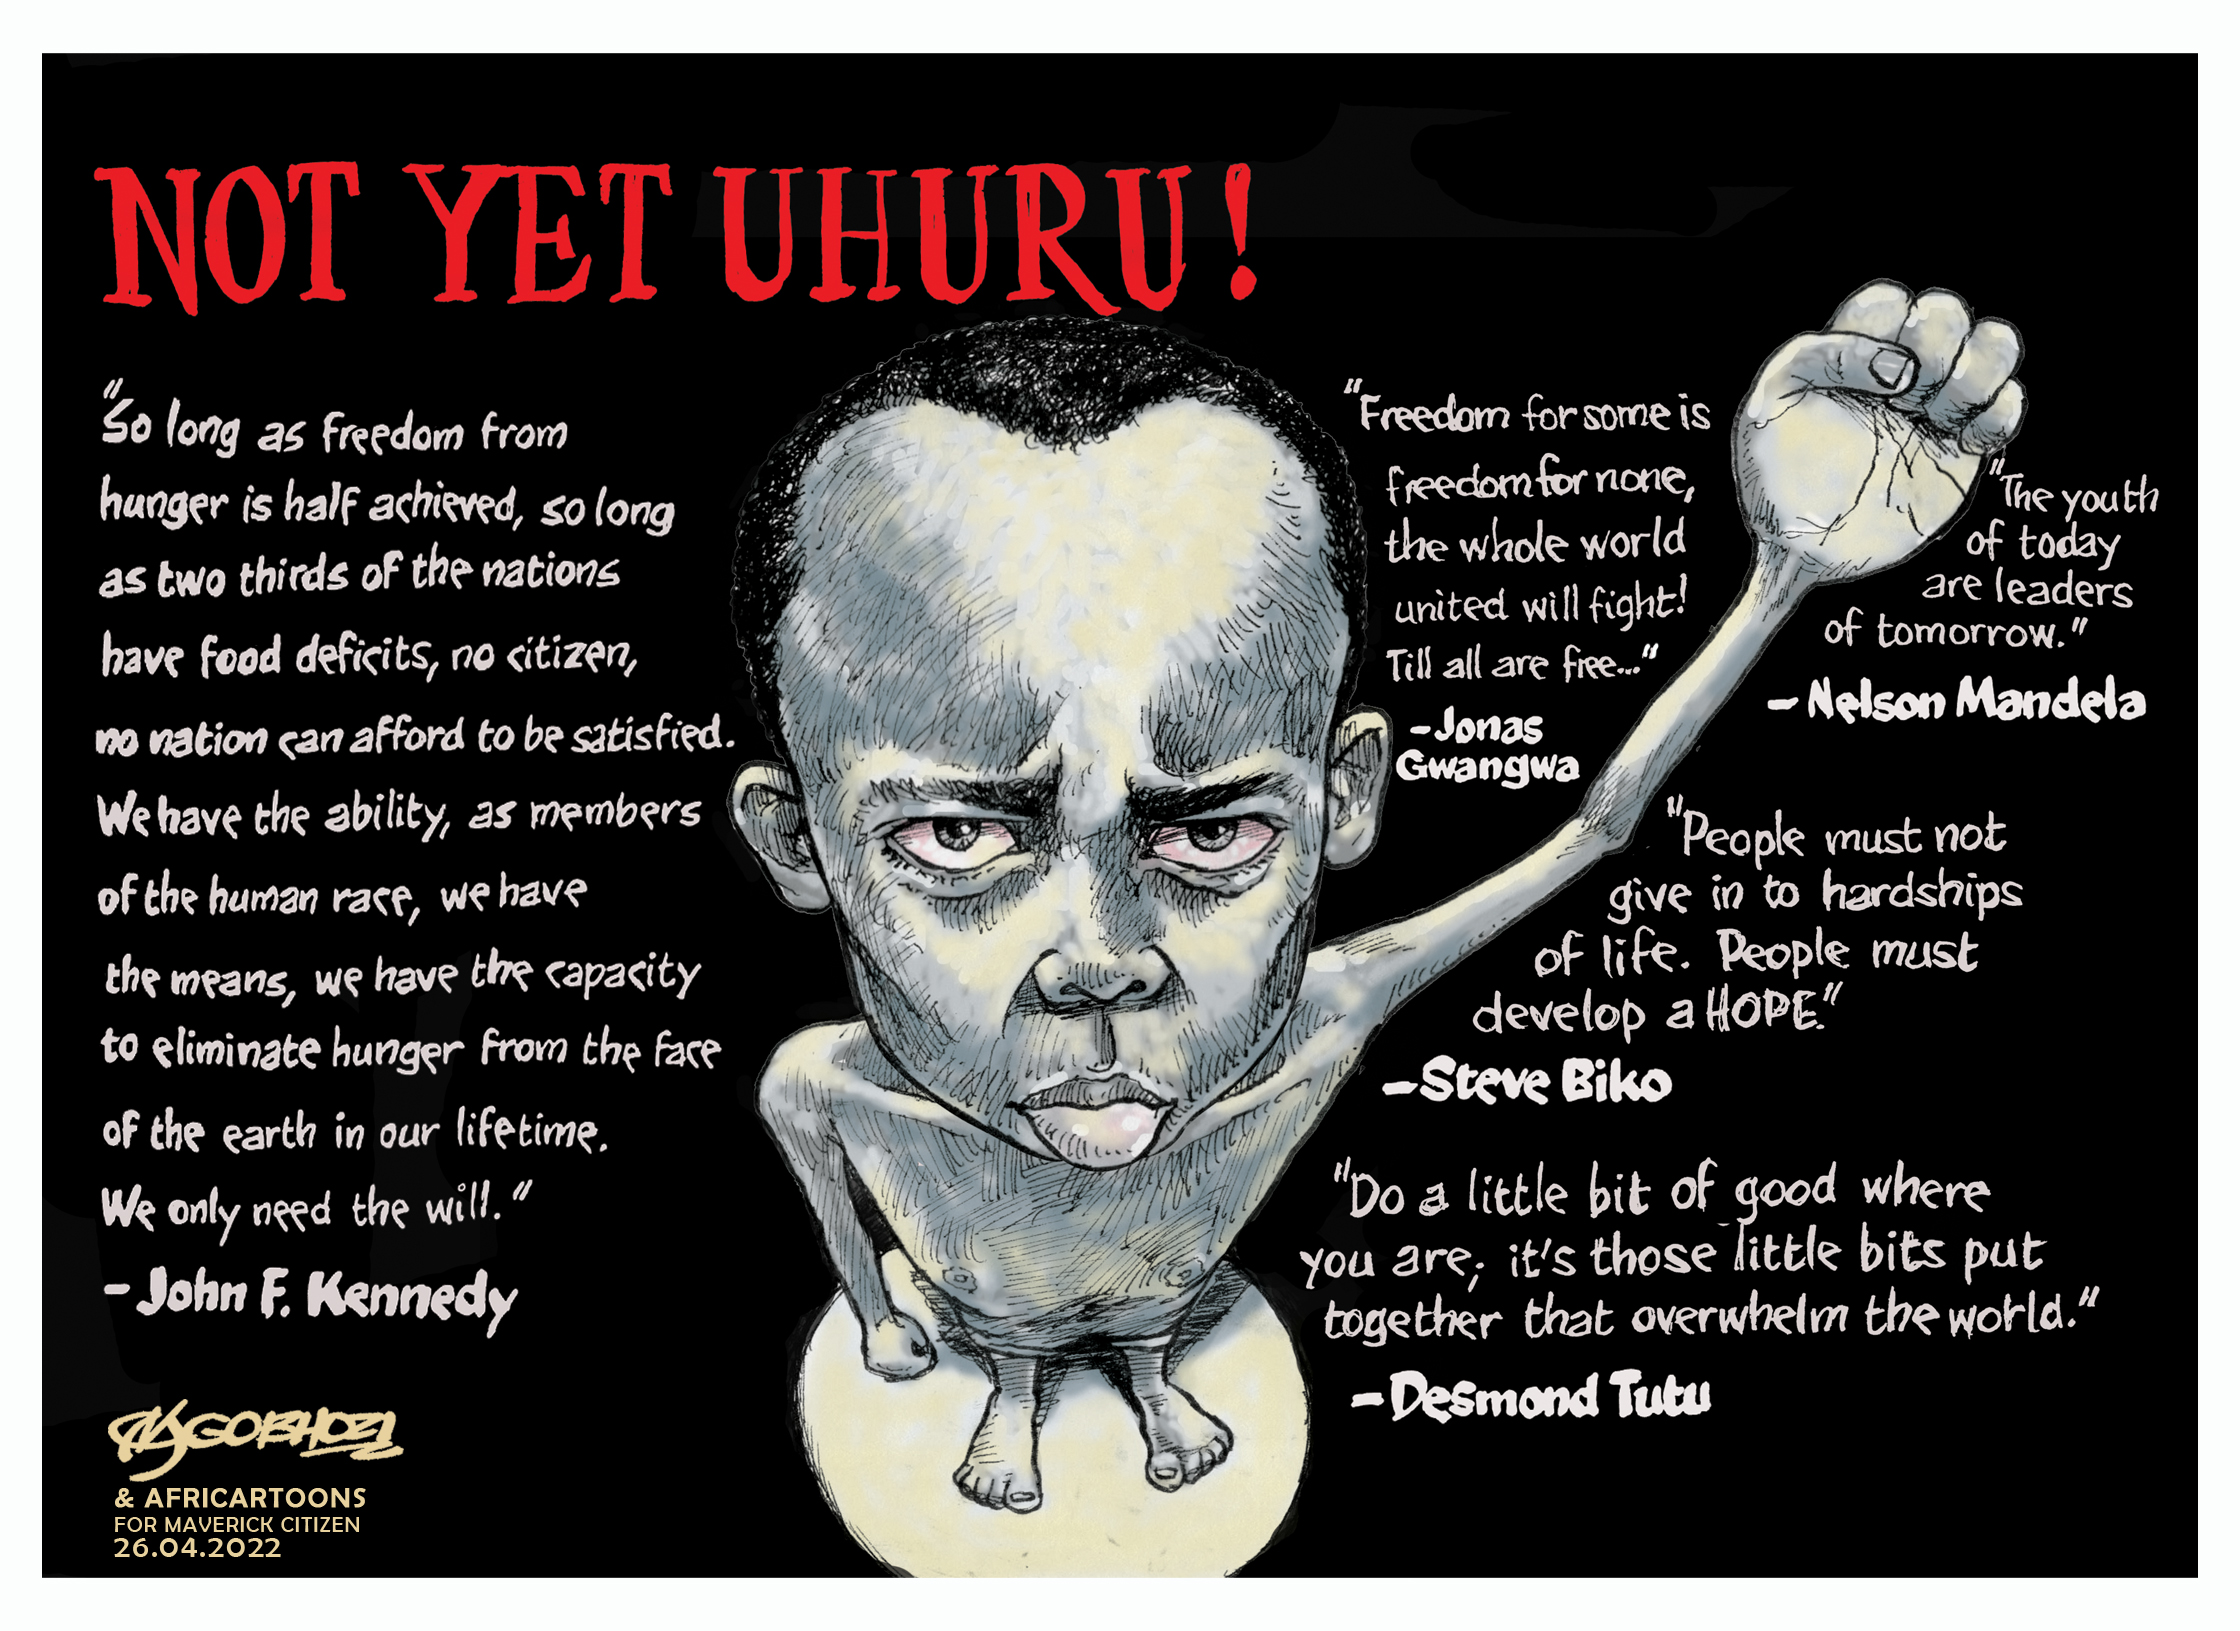 NOT YET UHURU!
"So long as freedom from
hunger is half achieved, so long
as two thirds of the nations
have food deficits, no citizen,
no nation can afford to be satisfied.
We have the ability, as members
of the human race, we have
the means, we have the capacity
to eliminate hunger from the face
of the earth in our lifetime.
We only need the will."
-John F. Kennedy
"Freedom for some is
freedom for none,
the whole world
united will fight!
Till all are free..."
-Jonas
Gwangwa
"The youth
of today
are leaders
of tomorrow."
-Nelson Mandela
"People must not
give in to hardships
of life. People must
develop a HOPE."
-Steve Biko
"Do a little bit of good where
you are; it's those little bits put
together that overwhelm the world."
-Desmond Tutu
& AFRICARTOONS
FOR MAVERICK CITIZEN
26.04.2022